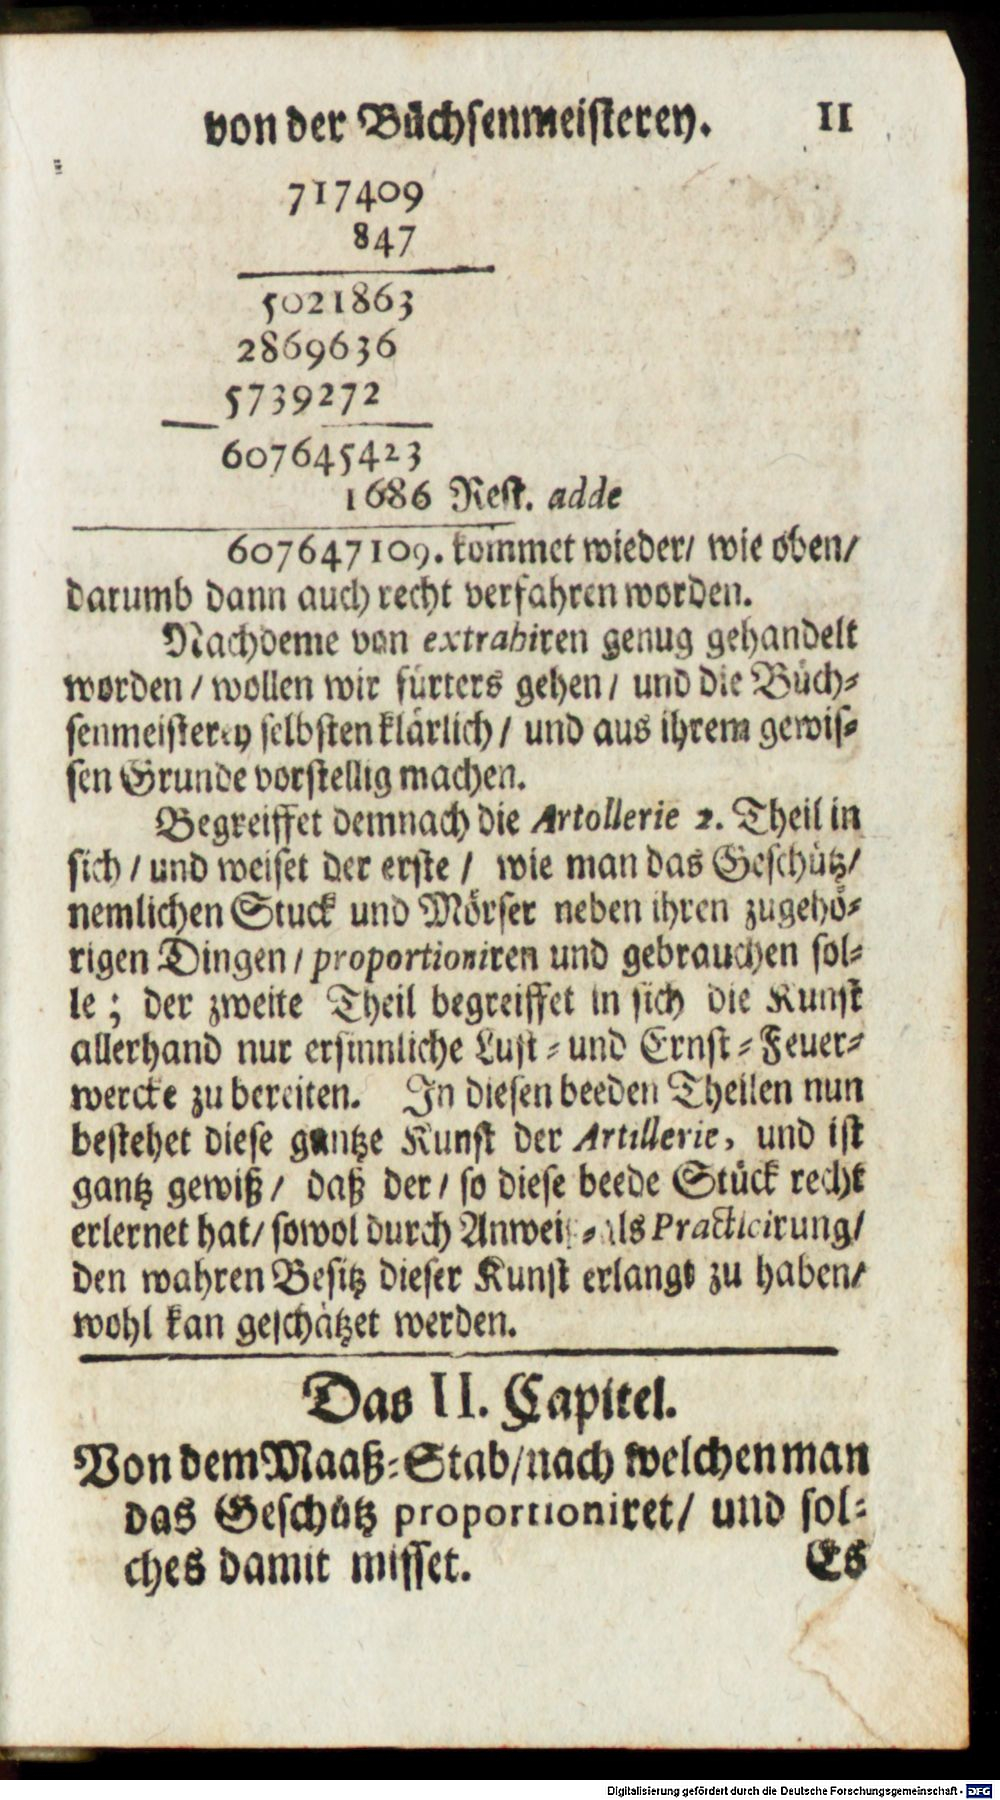 von der Büchsenmeisterey. 11
717409
847
5021863
2869636
5739272
607645423
1686 Rest. adde
607647109. kommet wieder/ wie oben/
darumb dann auch recht verfahren worden.
Nachdeme von extrahiren genug gehandelt
worden / wollen wir fürters gehen / und die Büch-
senmeisterey selbsten klärlich / und aus ihrem gewis-
sen Grunde vorstellig machen.
Begreiffet demnach die Artollerie 2. Theil in
sich / und weiset der erste / wie man das Geschütz/
nemlichen Stuck und Mörser neben ihren zugehö-
rigen Dingen / proportioniren und gebrauchen sol-
le ; der zweite Theil begreiffet in sich die Kunst
allerhand nur ersinnliche Lust- und Ernst-Feuer-
wercke zu bereiten. In diesen beeden Theilen nun
bestehet diese gantze Kunst der Artillerie, und ist
gantz gewiß / daß der / so diese beede Stück recht
erlernet hat/ sowol durch Anweis- als Practicirung/
den wahren Besitz dieser Kunst erlangt zu haben/
wohl kan geschätzet werden.
Das II. Capitel.
Von dem Maaß-Stab/nach welchen man
das Geschütz proportioniret/ und sol-
ches damit misset. Es
Digitalisierung gefördert durch die Deutsche Forschungsgemeinschaft - DFG